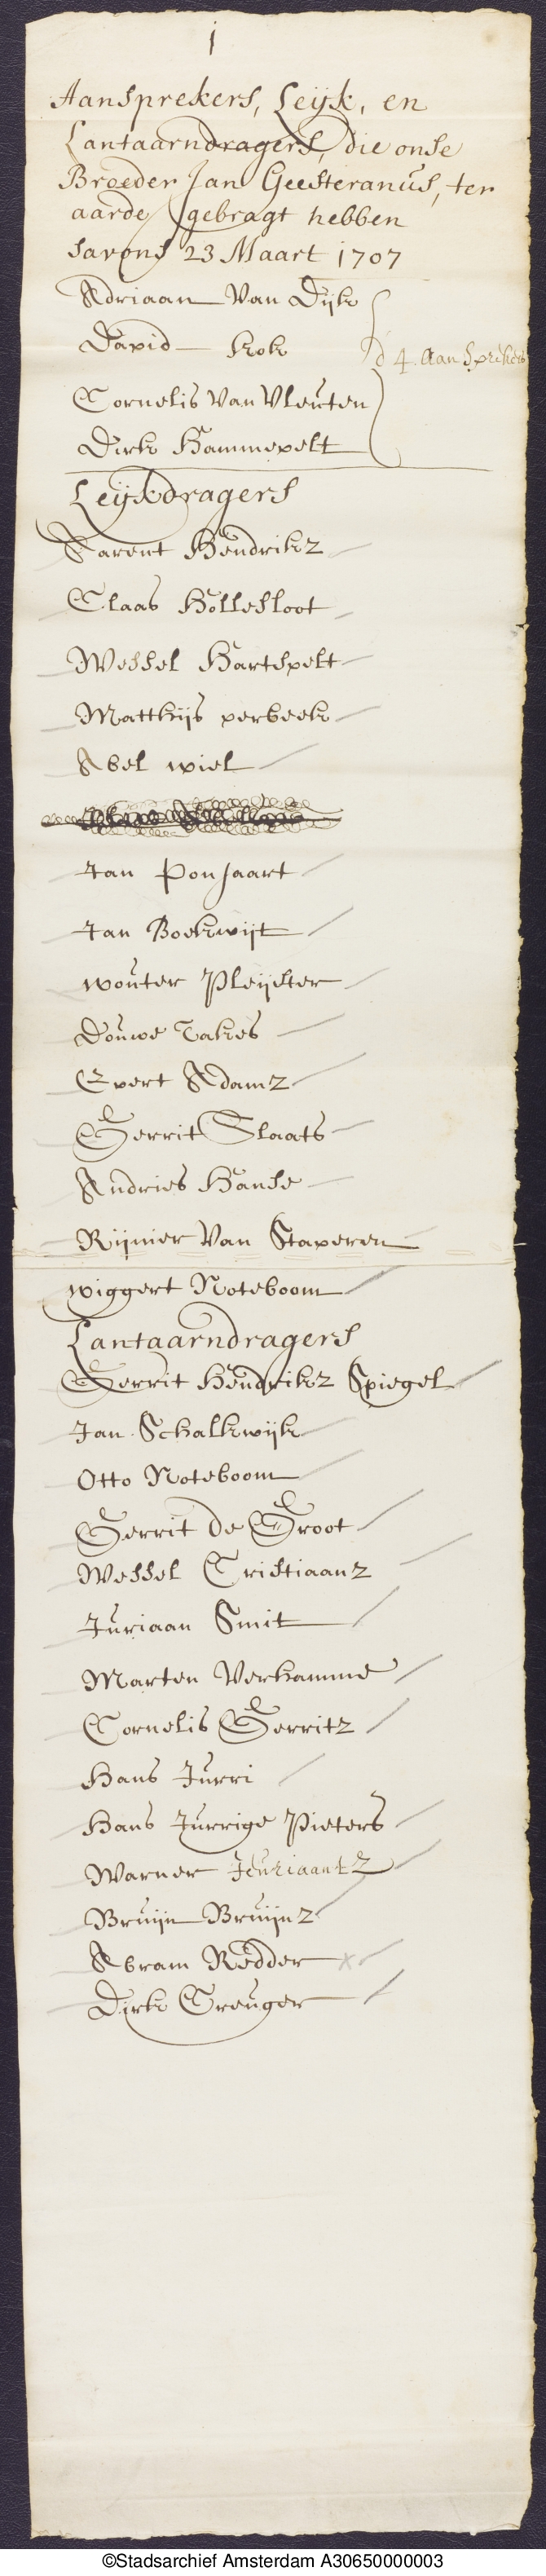 1
Aansprekers, Leijk, en
Lantaarndragers, die onse
Broeder Jan Geesteranus, ter
aarde gebragt hebben
savons 23 Maart 1707
Adriaan Van Dijk
David Kok
d 4. Aansprekers
Cornelis Van Vleuten
Dirk Hammevelt
Leijkdragers
Barent Hendrikz
Claas Hollesloot
Wessel Hartsvelt
Matthijs verbeek
Abel wiel
Jan Ponsaart
Jan Boekwijt
wouter Pleijster
Douwe Takes
Evert Adamz
Gerrit Slaats
Andries Hanse
Rijnier Van Staveren
wiggert Noteboom
Lantaarndragers
Gerrit Hendrikz Spiegel
Jan Schalkwijk
Otto Noteboom
Gerrit de Groot
Wessel Cristiaanz
Juriaan Smit
Marten Verhamme
Cornelis Gerritz
Hans Jurri
Hans Jurrige Pieters
Warner Jeuriaantz
Bruijn Bruijnz
Abram Redder
Dirk Creuger
©Stadsarchief Amsterdam A30650000003